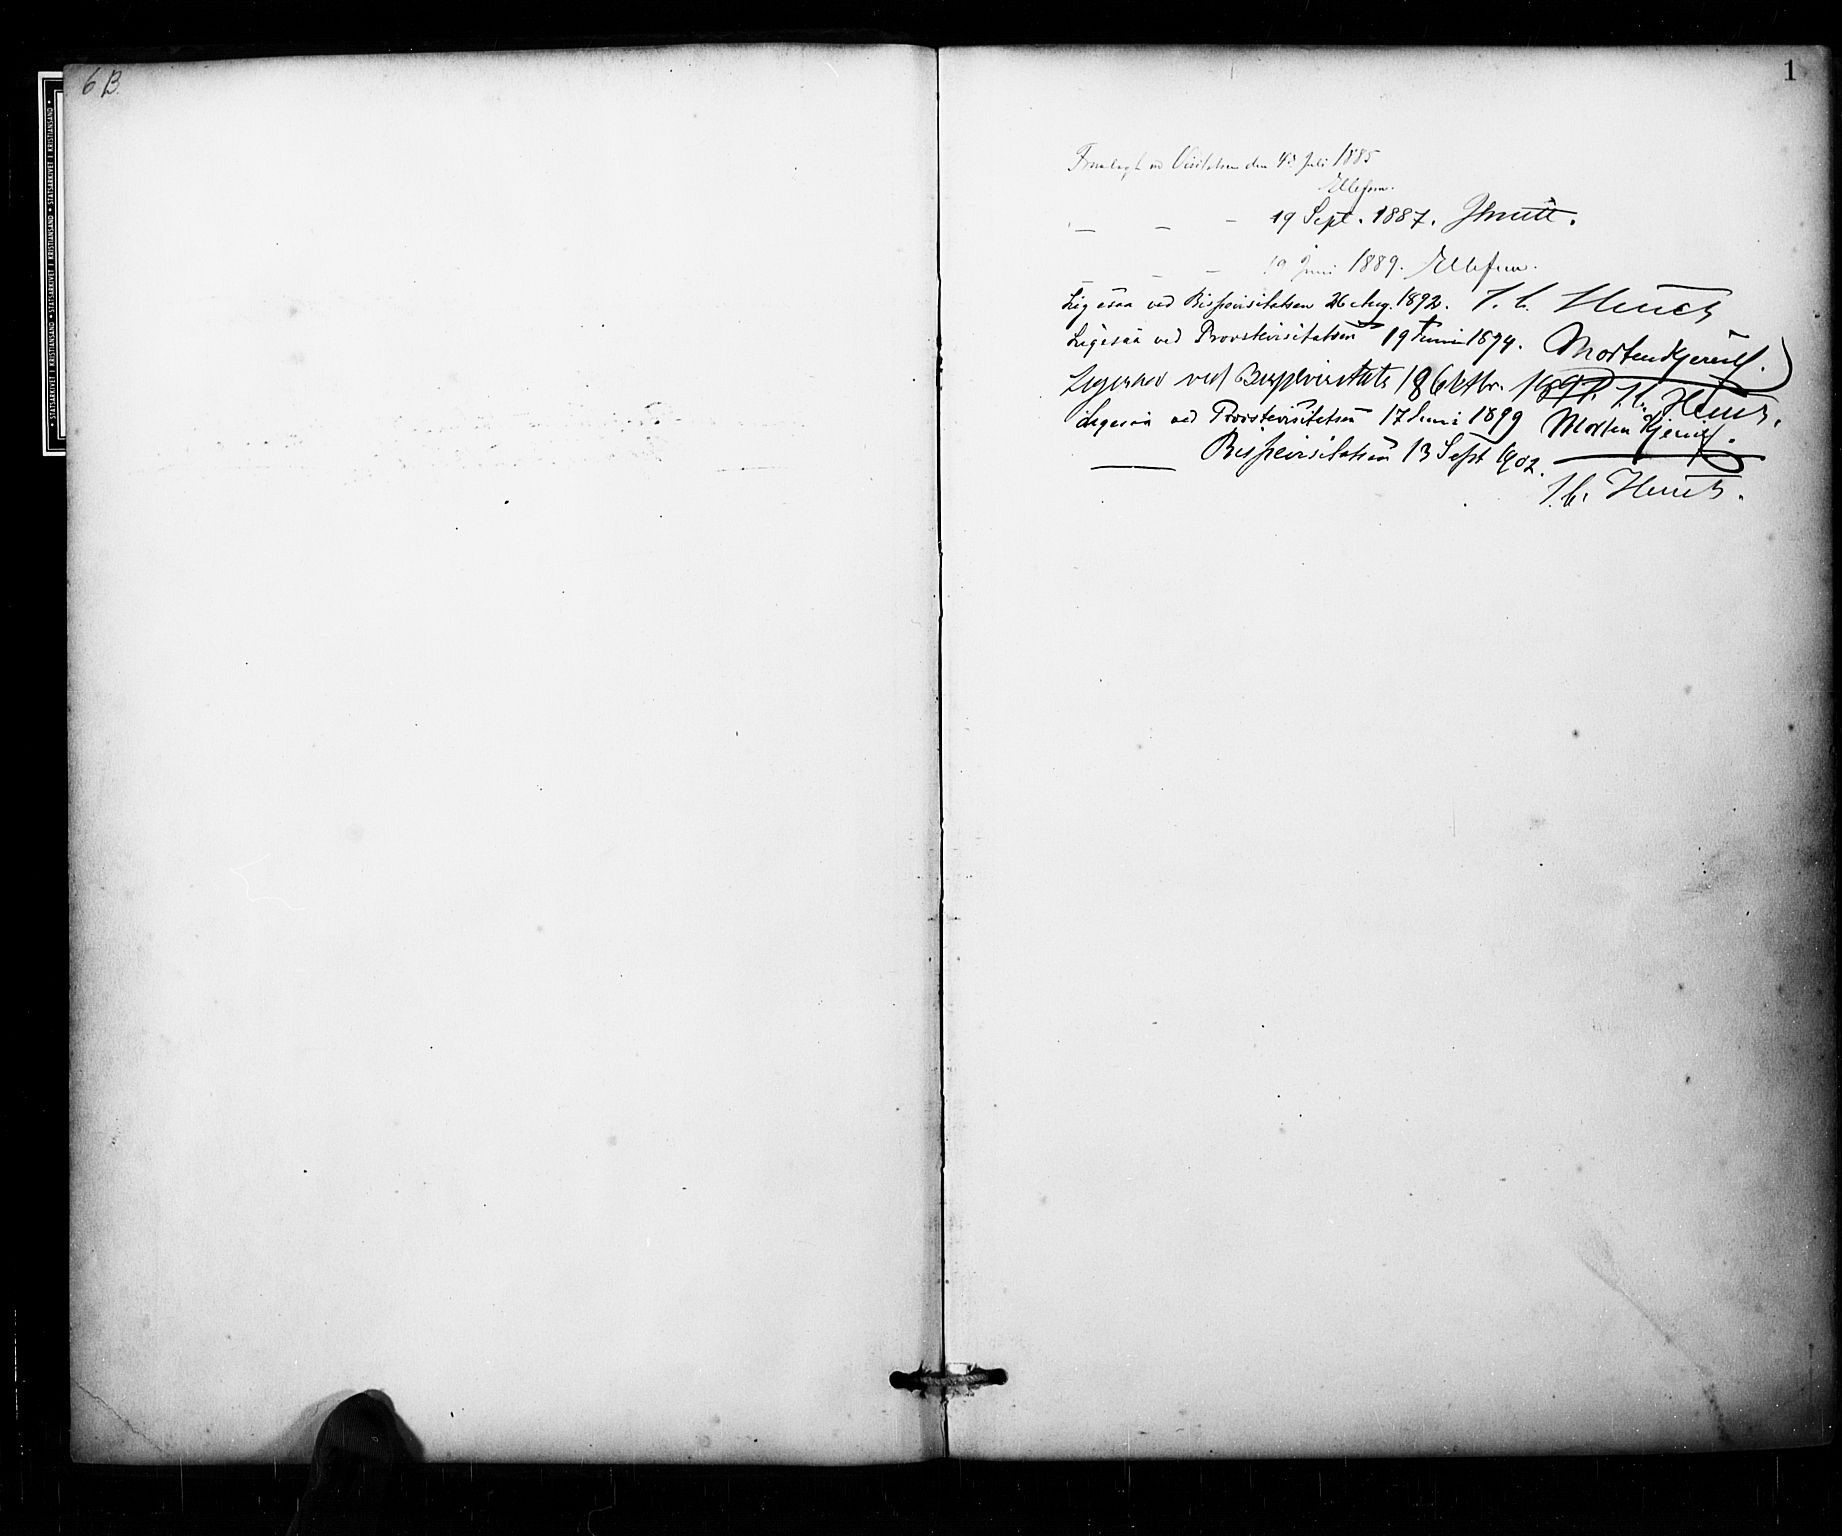 6 B.
1
STATSARKIVET I KRISTIANSAND • STATSARKIVET I KRISTIANSAND • STATSARKIVET I KRISTIANSAND •
Fremlagt ved Visitatsen den Juli 1885
Ellefsen.
— — — 19 Sept. 1887. Smitt.
— — 19 Juni 1889. Ellefsen.
Ligesaa ved Bispevisitatsen 26 Aug. 1892. J. C. Heuch
Ligesaa ved Provstevisitatsen 19 Juni 1894. Morten Kjerulf.
Ligesaa ved Bispevisitats 18 Oktbr. J. C. Heuch.
Ligesaa ved Provstevisitatsen 17 Juni 1899 Morten Kjerulf.
—— Bispevisitatsen 13 Sept 1902.
J. C. Heuch.